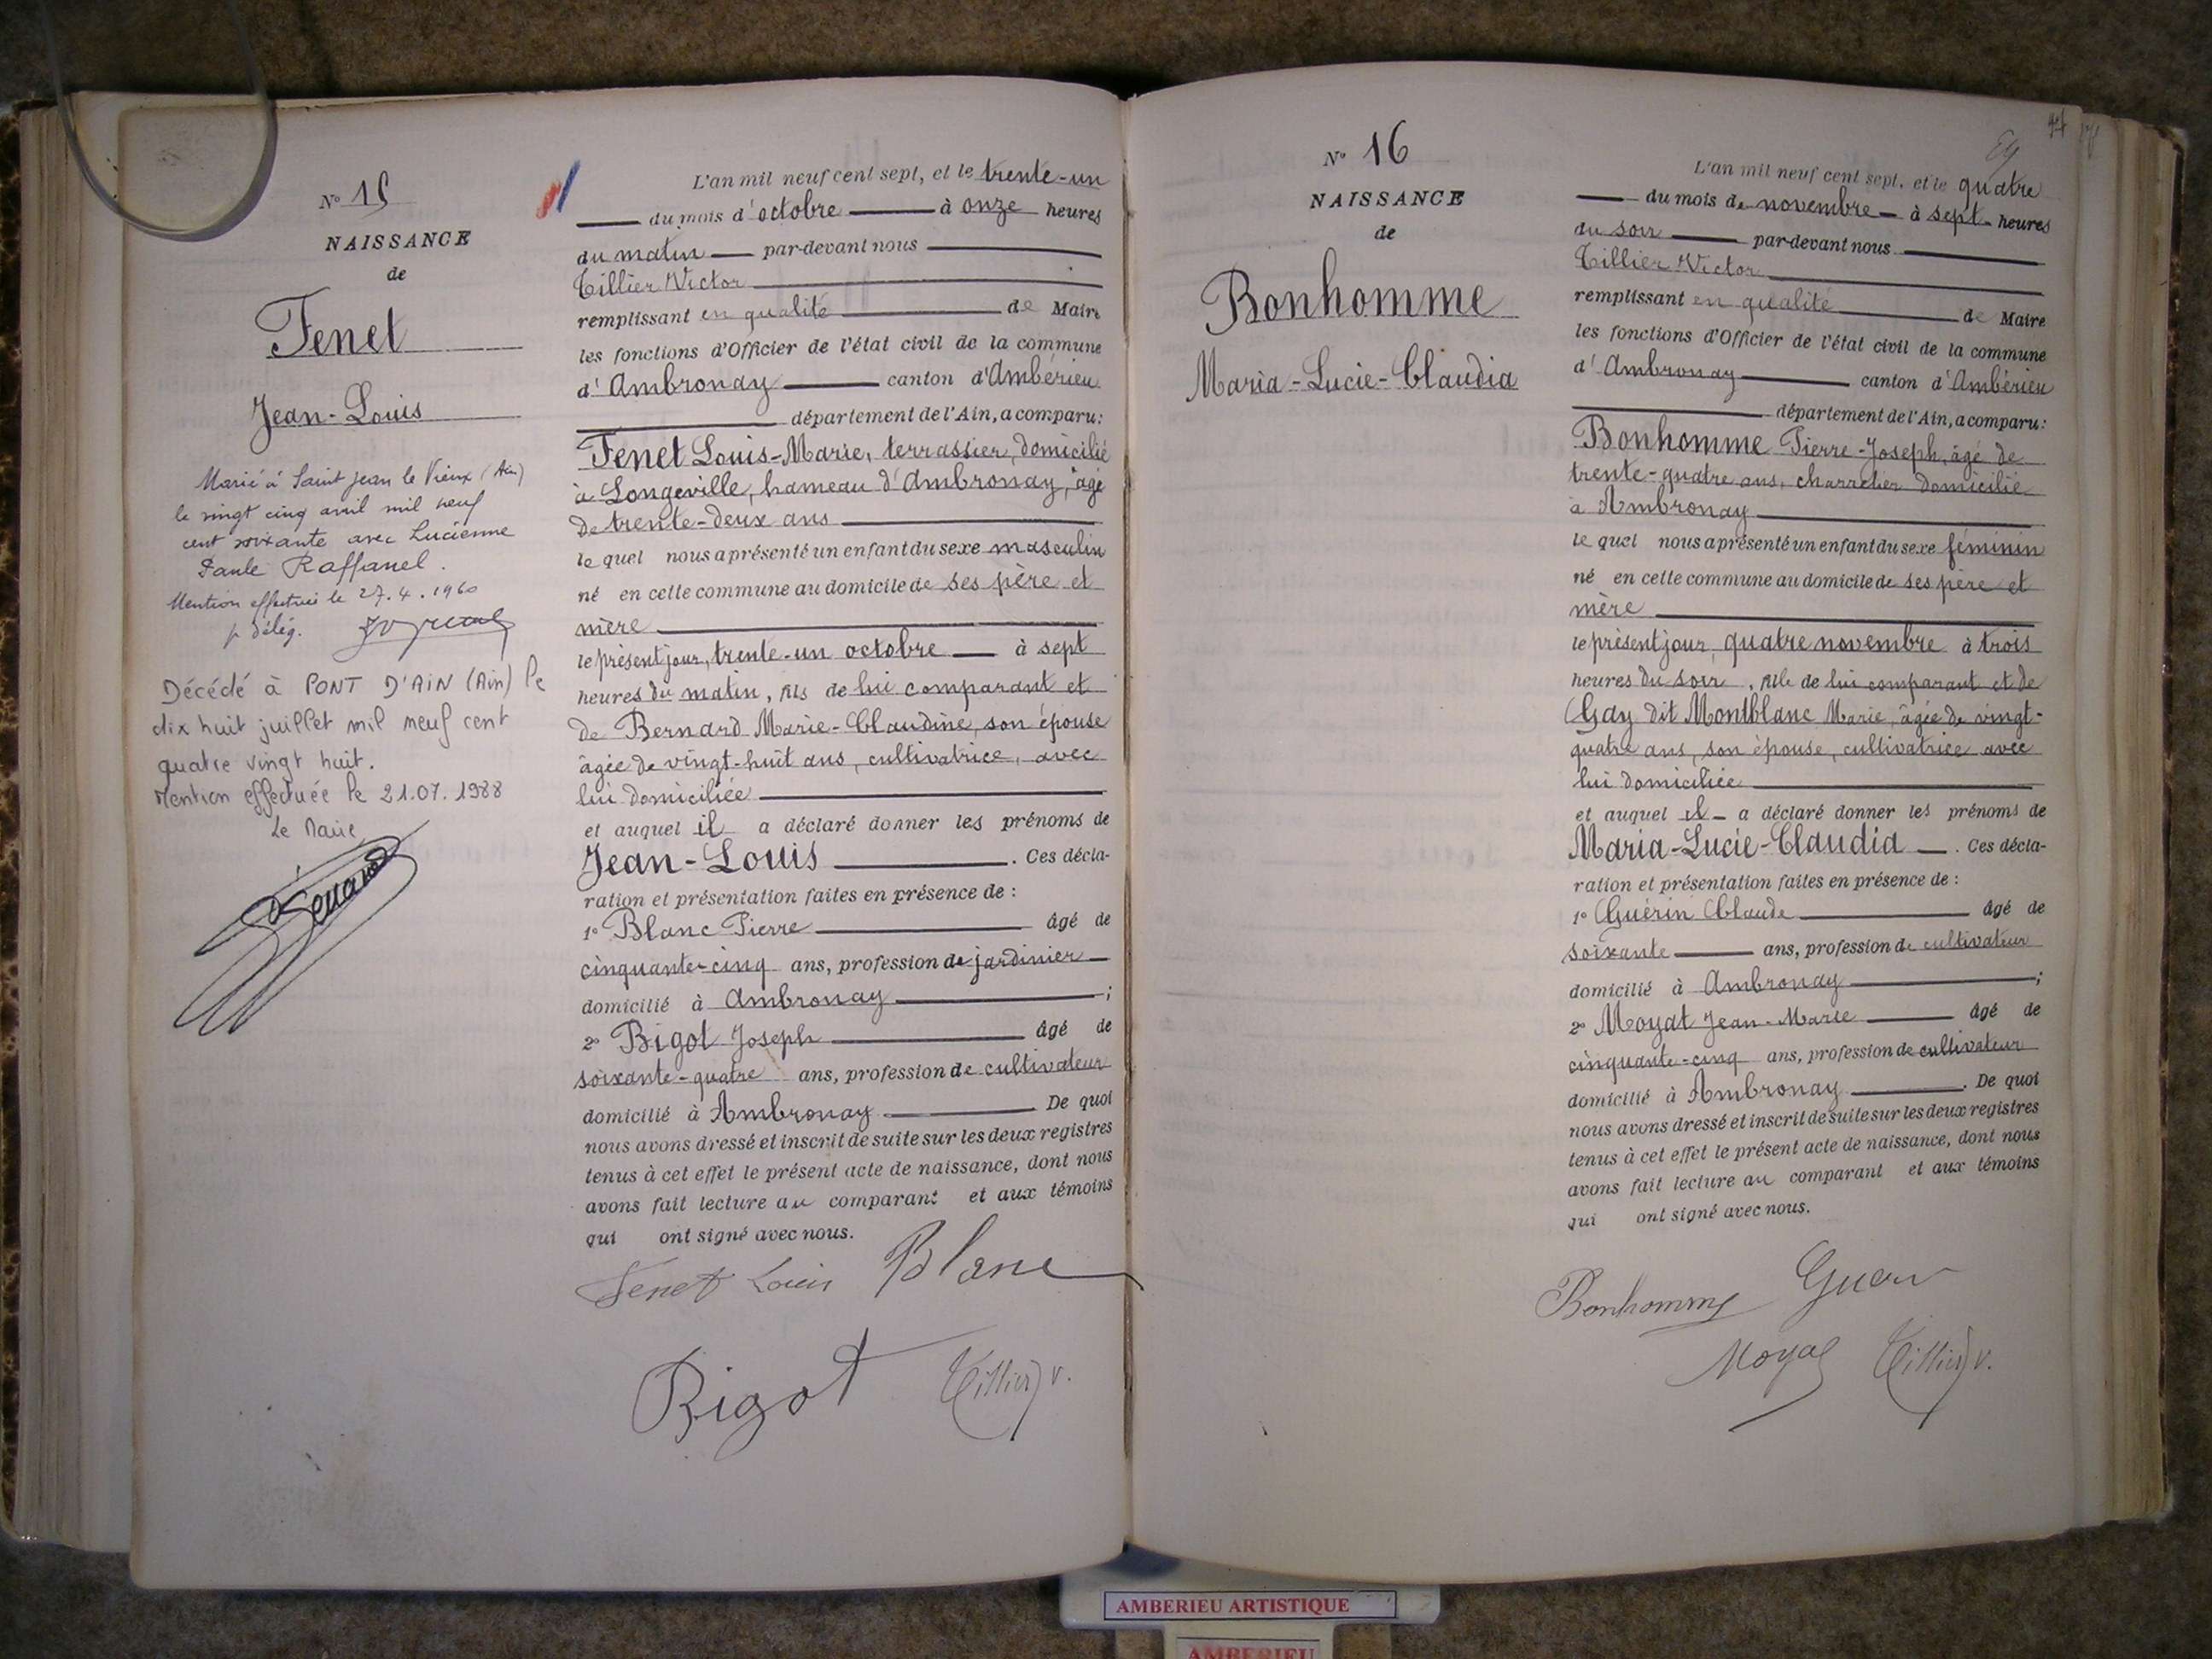 N° 15
NAISSANCE
de
Fenet
Jean-Louis
Marié à Saint Jean le Vieux (Ain)
le vingt cinq avril mil neuf
cent soixante avec Lucienne
Paule Raffanel.
Mention effectuée le 27.4.1960
p. délég.
Décédé à PONT D'AIN (Ain) le
dix huit juillet mil neuf cent
quatre vingt huit.
Mention effectuée le 21.07.1988
Le Maire
L'an mil neuf cent sept, et le trente-un
du mois d'octobre à onze heures
du matin par-devant nous
Tillier Victor
remplissant en qualité de Maire
les fonctions d'Officier de l'état civil de la commune
d'Ambronay canton d'Ambérieu
département de l'Ain, a comparu:
Fenet Louis-Marie, terrassier, domicilié
à Longeville, hameau d'Ambronay, âgé
de trente-deux ans
le quel nous a présenté un enfant du sexe masculin
né en cette commune au domicile de ses père et
mère
le présent jour, trente-un octobre à sept
heures du matin, fils de lui comparant et
de Bernard Marie-Claudine, son épouse
âgée de vingt-huit ans, cultivatrice, avec
lui domiciliée
et auquel il a déclaré donner les prénoms de
Jean-Louis . Ces décla-
ration et présentation faites en présence de :
1° Blanc Pierre âgé de
cinquante-cinq ans, profession de jardinier
domicilié à Ambronay ;
2° Bigot Joseph âgé de
soixante-quatre ans, profession de cultivateur
domicilié à Ambronay De quoi
nous avons dressé et inscrit de suite sur les deux registres
tenus à cet effet le présent acte de naissance, dont nous
avons fait lecture au comparant et aux témoins
qui ont signé avec nous.
Fenet Louis Blanc
Bigot Tillier V.
N° 16
NAISSANCE
de
Bonhomme
Maria-Lucie-Claudia
L'an mil neuf cent sept, et le quatre
du mois de novembre à sept heures
du soir par-devant nous
Tillier Victor
remplissant en qualité de Maire
les fonctions d'Officier de l'état civil de la commune
d'Ambronay canton d'Ambérieu
département de l'Ain, a comparu:
Bonhomme Pierre-Joseph, âgé de
trente-quatre ans, charretier domicilié
à Ambronay
le quel nous a présenté un enfant du sexe féminin
né en cette commune au domicile de ses père et
mère
le présent jour, quatre novembre à trois
heures du soir, fille de lui comparant et de
Gay dit Montblanc Marie, âgée de vingt-
quatre ans, son épouse, cultivatrice avec
lui domiciliée
et auquel il a déclaré donner les prénoms de
Maria-Lucie-Claudia . Ces décla-
ration et présentation faites en présence de :
1° Guérin Claude âgé de
soixante ans, profession de cultivateur
domicilié à Ambronay ;
2° Moyat Jean-Marie âgé de
cinquante-cinq ans, profession de cultivateur
domicilié à Ambronay . De quoi
nous avons dressé et inscrit de suite sur les deux registres
tenus à cet effet le présent acte de naissance, dont nous
avons fait lecture au comparant et aux témoins
qui ont signé avec nous.
Bonhomme
Moyat Tillier V.
AMBERIEU ARTISTIQUE
AMBERIEU